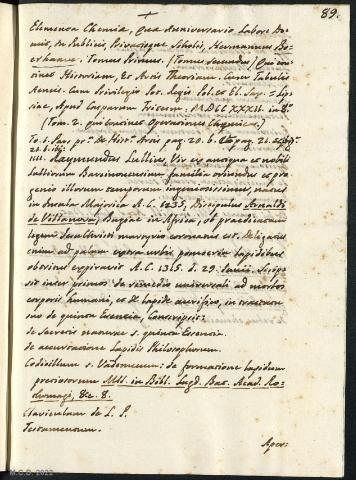 89.
Elementa Chemiæ, Quæ Anniversario Labore Do-
cuit, in Publicis, Privatisque Scholis, Hermannus Bo-
erhaave. Tomus Primus. (Tomus secundus) Qui con-
tinet Historiam, et Artis Theoriam. Cum Tabulis
Aeneis. Cum Privilegio Sac. Regis Pol. et El. Sax. Lip-
siæ, Apud Casparum Fritsch. MDCCXXXII. in 8º
(Tom. 2. qui continet Operationes Chymicas.)
To. 1. Pars pr. de Hist. Artis pag. 20. b.
Raymundus Lullius, Vir ex antiqua et nobili
Lulliorum Barcinonensium familia oriundus et pro
genio illorum temporum ingeniosissimus, natus
in Insula Majorica A. C. 1235, Discipulus Arnaldi
de Villanova, Bugiæ in Africa, ob prædicatam
legem Jesu Christi martyrio coronatus est. Deligatus
enim ad palum extra urbis pomœria lapidibus
obrutus expiravit A. C. 1315. d. 29. Junii. Scrip-
sit inter primos de remedio universali ad morbos
corporis humani, et de lapide aurifico, in tractatu
suo de quinta Essentia, Conscripsit:
de Secretis naturæ s. quinta Essentia.
de accurtatione Lapidis Philosophorum.
Codicillum s. Vademecum: de formatione lapidum
pretiosorum MSS. in Bibl. Lugd. Bat. Acad. Ro-
thomagi, &c. 8.
Claviculam de L. P.
Testamentum.
Aper:
M.C.D. 2022